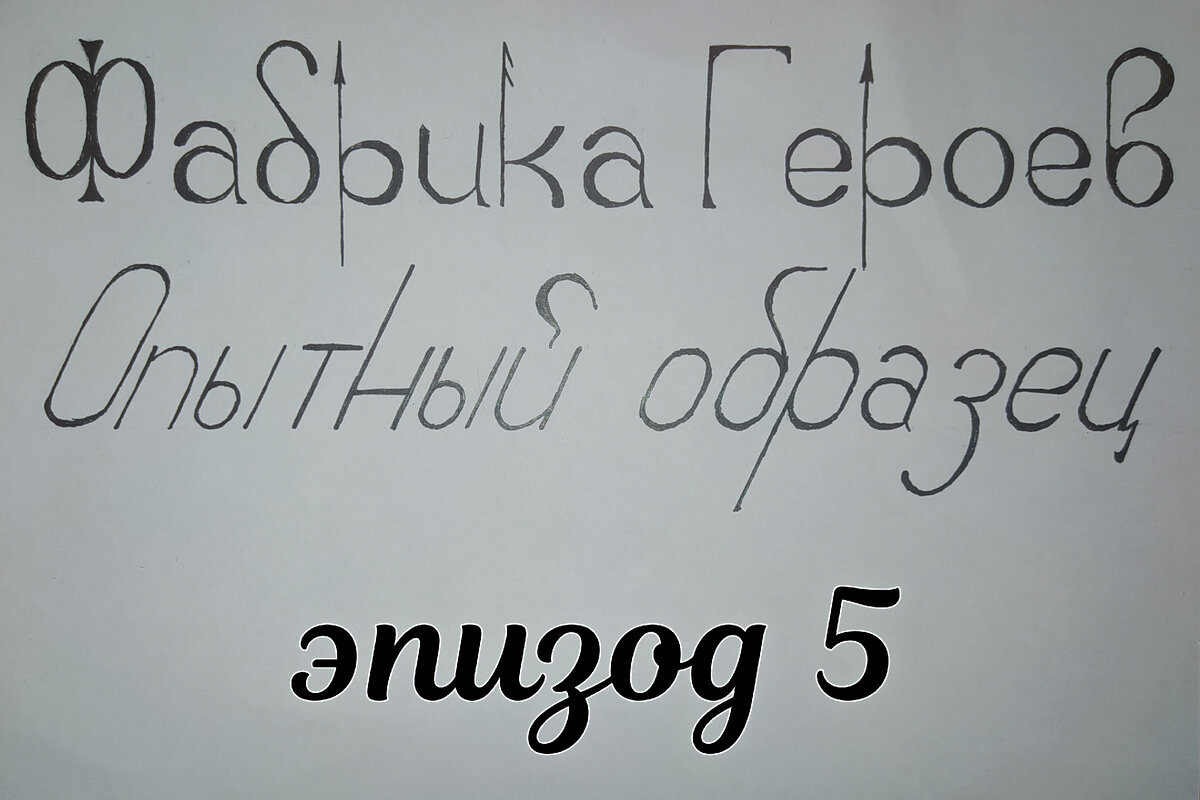 Фабрика Героев
Опытный образец
эпизод 5